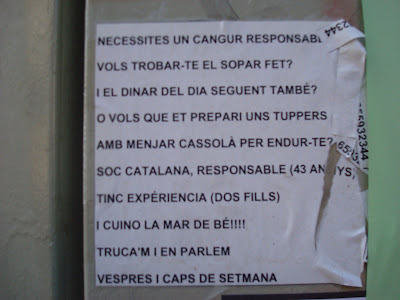 NECESSITES UN CANGUR RESPONSAB
VOLS TROBAR-TE EL SOPAR FET?
I EL DINAR DEL DIA SEGUENT TAMBÉ?
O VOLS QUE ET PREPARI UNS TUPPERS
AMB MENJAR CASSOLÀ PER ENDUR-TE?
SOC CATALANA, RESPONSABLE (43 ANYS)
TINC EXPÉRIENCIA (DOS FILLS)
I CUINO LA MAR DE BÉ!!!!
TRUCA'M I EN PARLEM
VESPRES I CAPS DE SETMANA
2344
55932344